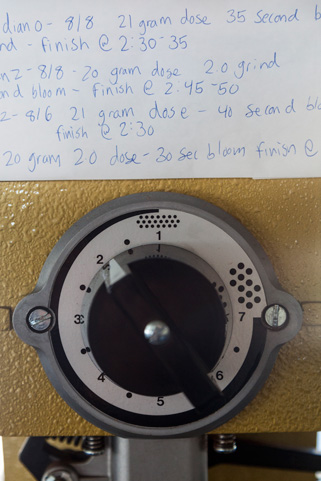 diano - 8/8 21 gram dose 35 second b
nd - finish @ 2:30-35
nz - 8/8 - 20 gram dose 2.0 grind
ond bloom - finish @ 2:45-50
z - 8/6 21 gram dose - 40 second blo
finish @ 2:30
20 gram 2.0 dose - 30 sec bloom finish @
1
2
3
4
5
6
7